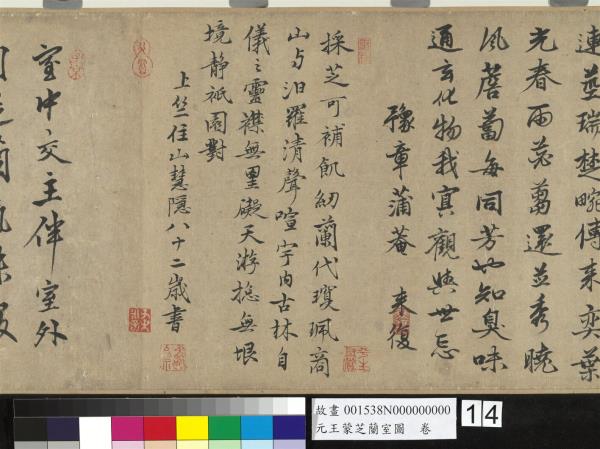 連莖瑞楚畹傳来奕葉
光春雨還並秀曉
風薝蔔每同芳也知臭味
通玄化物我冥觀與世忘
豫章蒲菴 来復
採芝可補飢紉蘭代瓊珮商
山与汨羅清聲喧宇内古林自
儀之靈襟無罣礙天游揔無垠
境静祇園對
上竺住山慧隱八十二歲書
室中交主伴室外
故畫 001538N000000000
元王蒙芝蘭室圖 卷
14